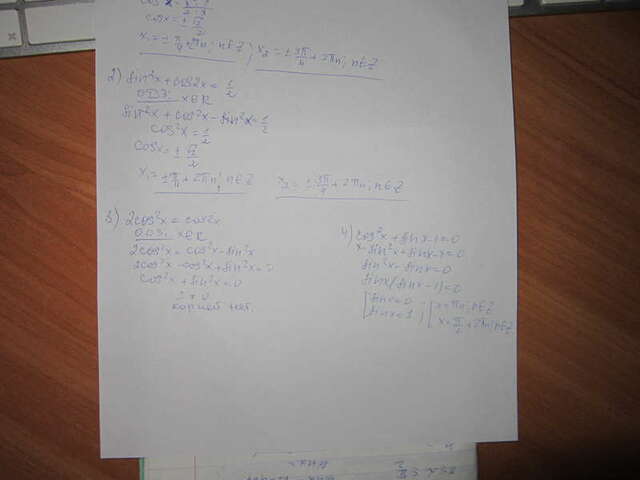 cosx = ± √2/2
x₁ = ± π/4 + 2πn; n∈Z ; x₂ = ± 3π/4 + 2πn; n∈Z
2) sin²x + cos2x = 1/2
ОДЗ: x∈R
sin²x + cos²x - sin²x = 1/2
cos²x = 1/2
cosx = ± √2/2
x₁ = ± π/4 + 2πn; n∈Z x₂ = ± 3π/4 + 2πn; n∈Z
3) 2cos²x = cos2x
ОДЗ: x∈R
2cos²x = cos²x - sin²x
2cos²x - cos²x + sin²x = 0
cos²x + sin²x = 0
1 ≠ 0
корней нет.
4) cos²x + sinx - 1 = 0
1 - sin²x + sinx - 1 = 0
sin²x - sinx = 0
sinx(sinx - 1) = 0
[sinx = 0
sinx = 1 ; [x = πn; n∈Z
x = π/2 + 2πn; n∈Z